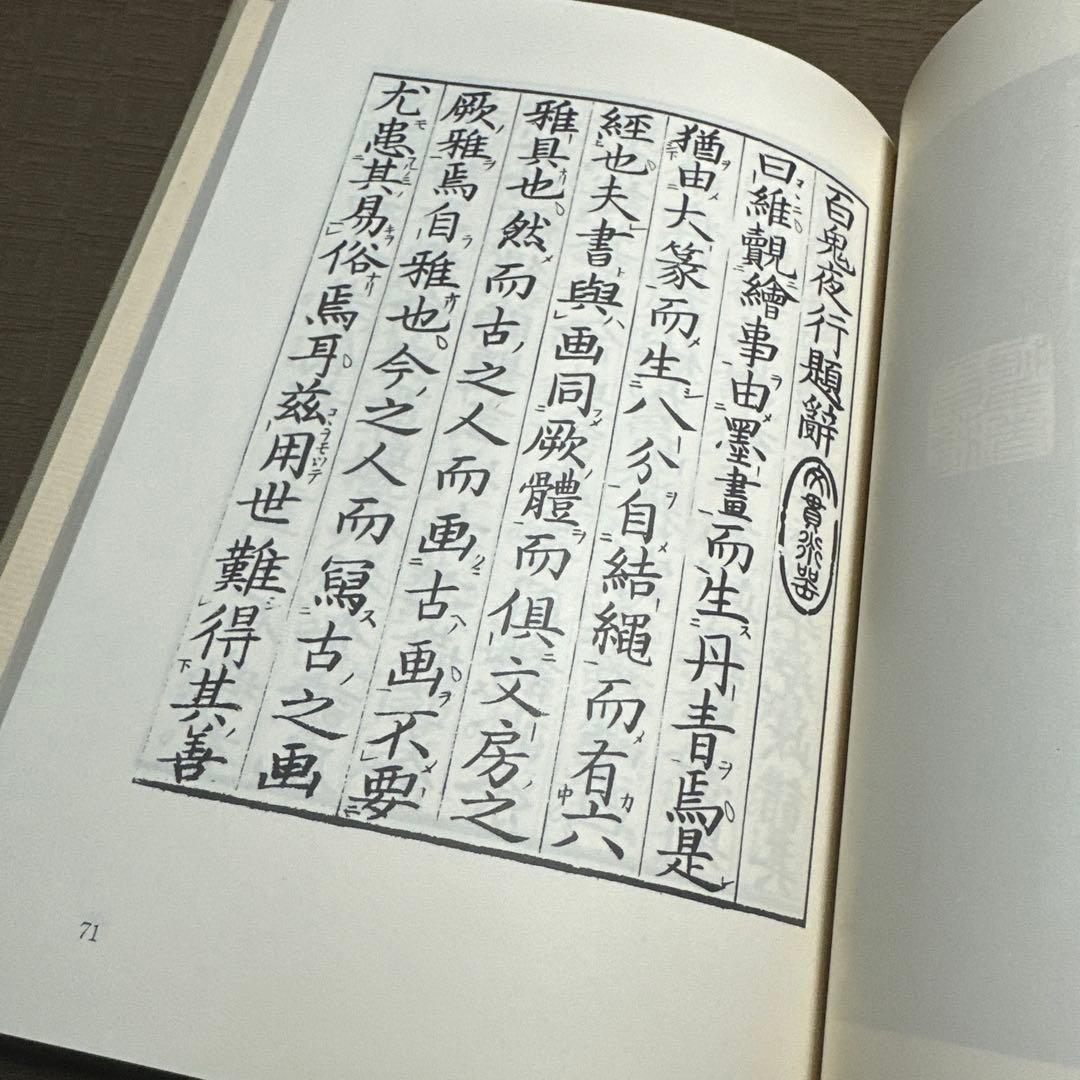 百鬼夜行題辭
文貫術器
曰維覿繪事由墨畫而生丹青焉是
猶由大篆而生八分自結繩而有六
經也夫書與画同厥體而俱文房之
雅具也然而古之人而画古画不要
厥雅焉自雅也今之人而寫古之画
尤患其易俗焉耳茲用世難得其善
71